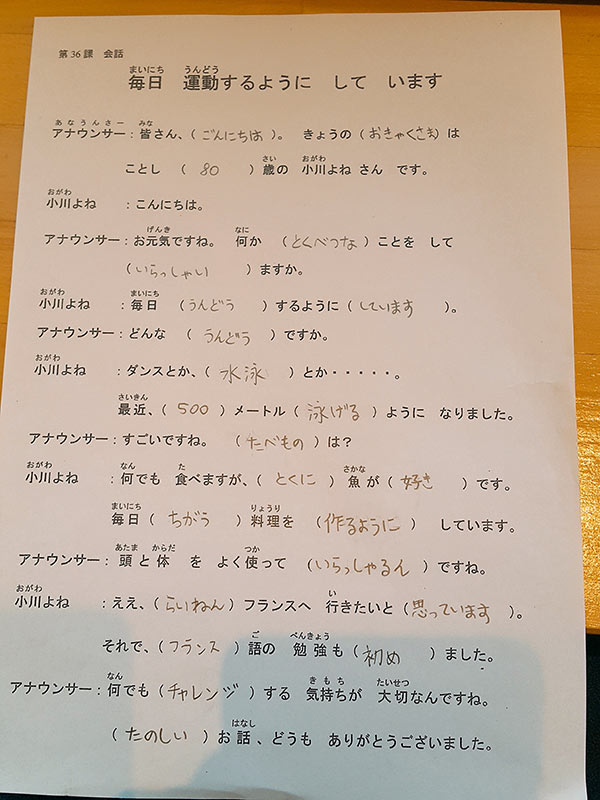 第36課 会話
まいにち うんどう
毎日 運動するように して います
あなうんさー みな
アナウンサー：皆さん、（ごんにちは）。 きょうの（おきゃくさま）は
さい おがわ
ことし（ 80 ）歳の 小川よね さん です。
おがわ
小川よね ：こんにちは。
げんき なに
アナウンサー：お元気ですね。 何か （とくべつな）ことを して
（いらっしゃい ）ますか。
おがわ まいにち
小川よね ：毎日 （うんどう ）するように（しています ）。
アナウンサー：どんな （うんどう ）ですか。
おがわ
小川よね ：ダンスとか、（ 水泳 ）とか・・・・・。
さいきん
最近、（ 500 ）メートル（ 泳げる ）ように なりました。
アナウンサー：すごいですね。 （たべもの）は？
おがわ なん た さかな
小川よね ：何でも 食べますが、（とくに ）魚が（好き ）です。
まいにち りょうり
毎日（ ちがう ）料理を （作るように） しています。
あたま からだ つか
アナウンサー：頭と体 を よく使って （いらっしゃるん）ですね。
おがわ い
小川よね ：ええ、（らいねん）フランスへ 行きたいと（思っています ）。
ご べんきょう
それで、（フランス ）語の 勉強も（初め ）ました。
なん きもち たいせつ
アナウンサー：何でも（チャレンジ ）する 気持ちが 大切なんですね。
はなし
（たのしい ）お話、どうも ありがとうございました。